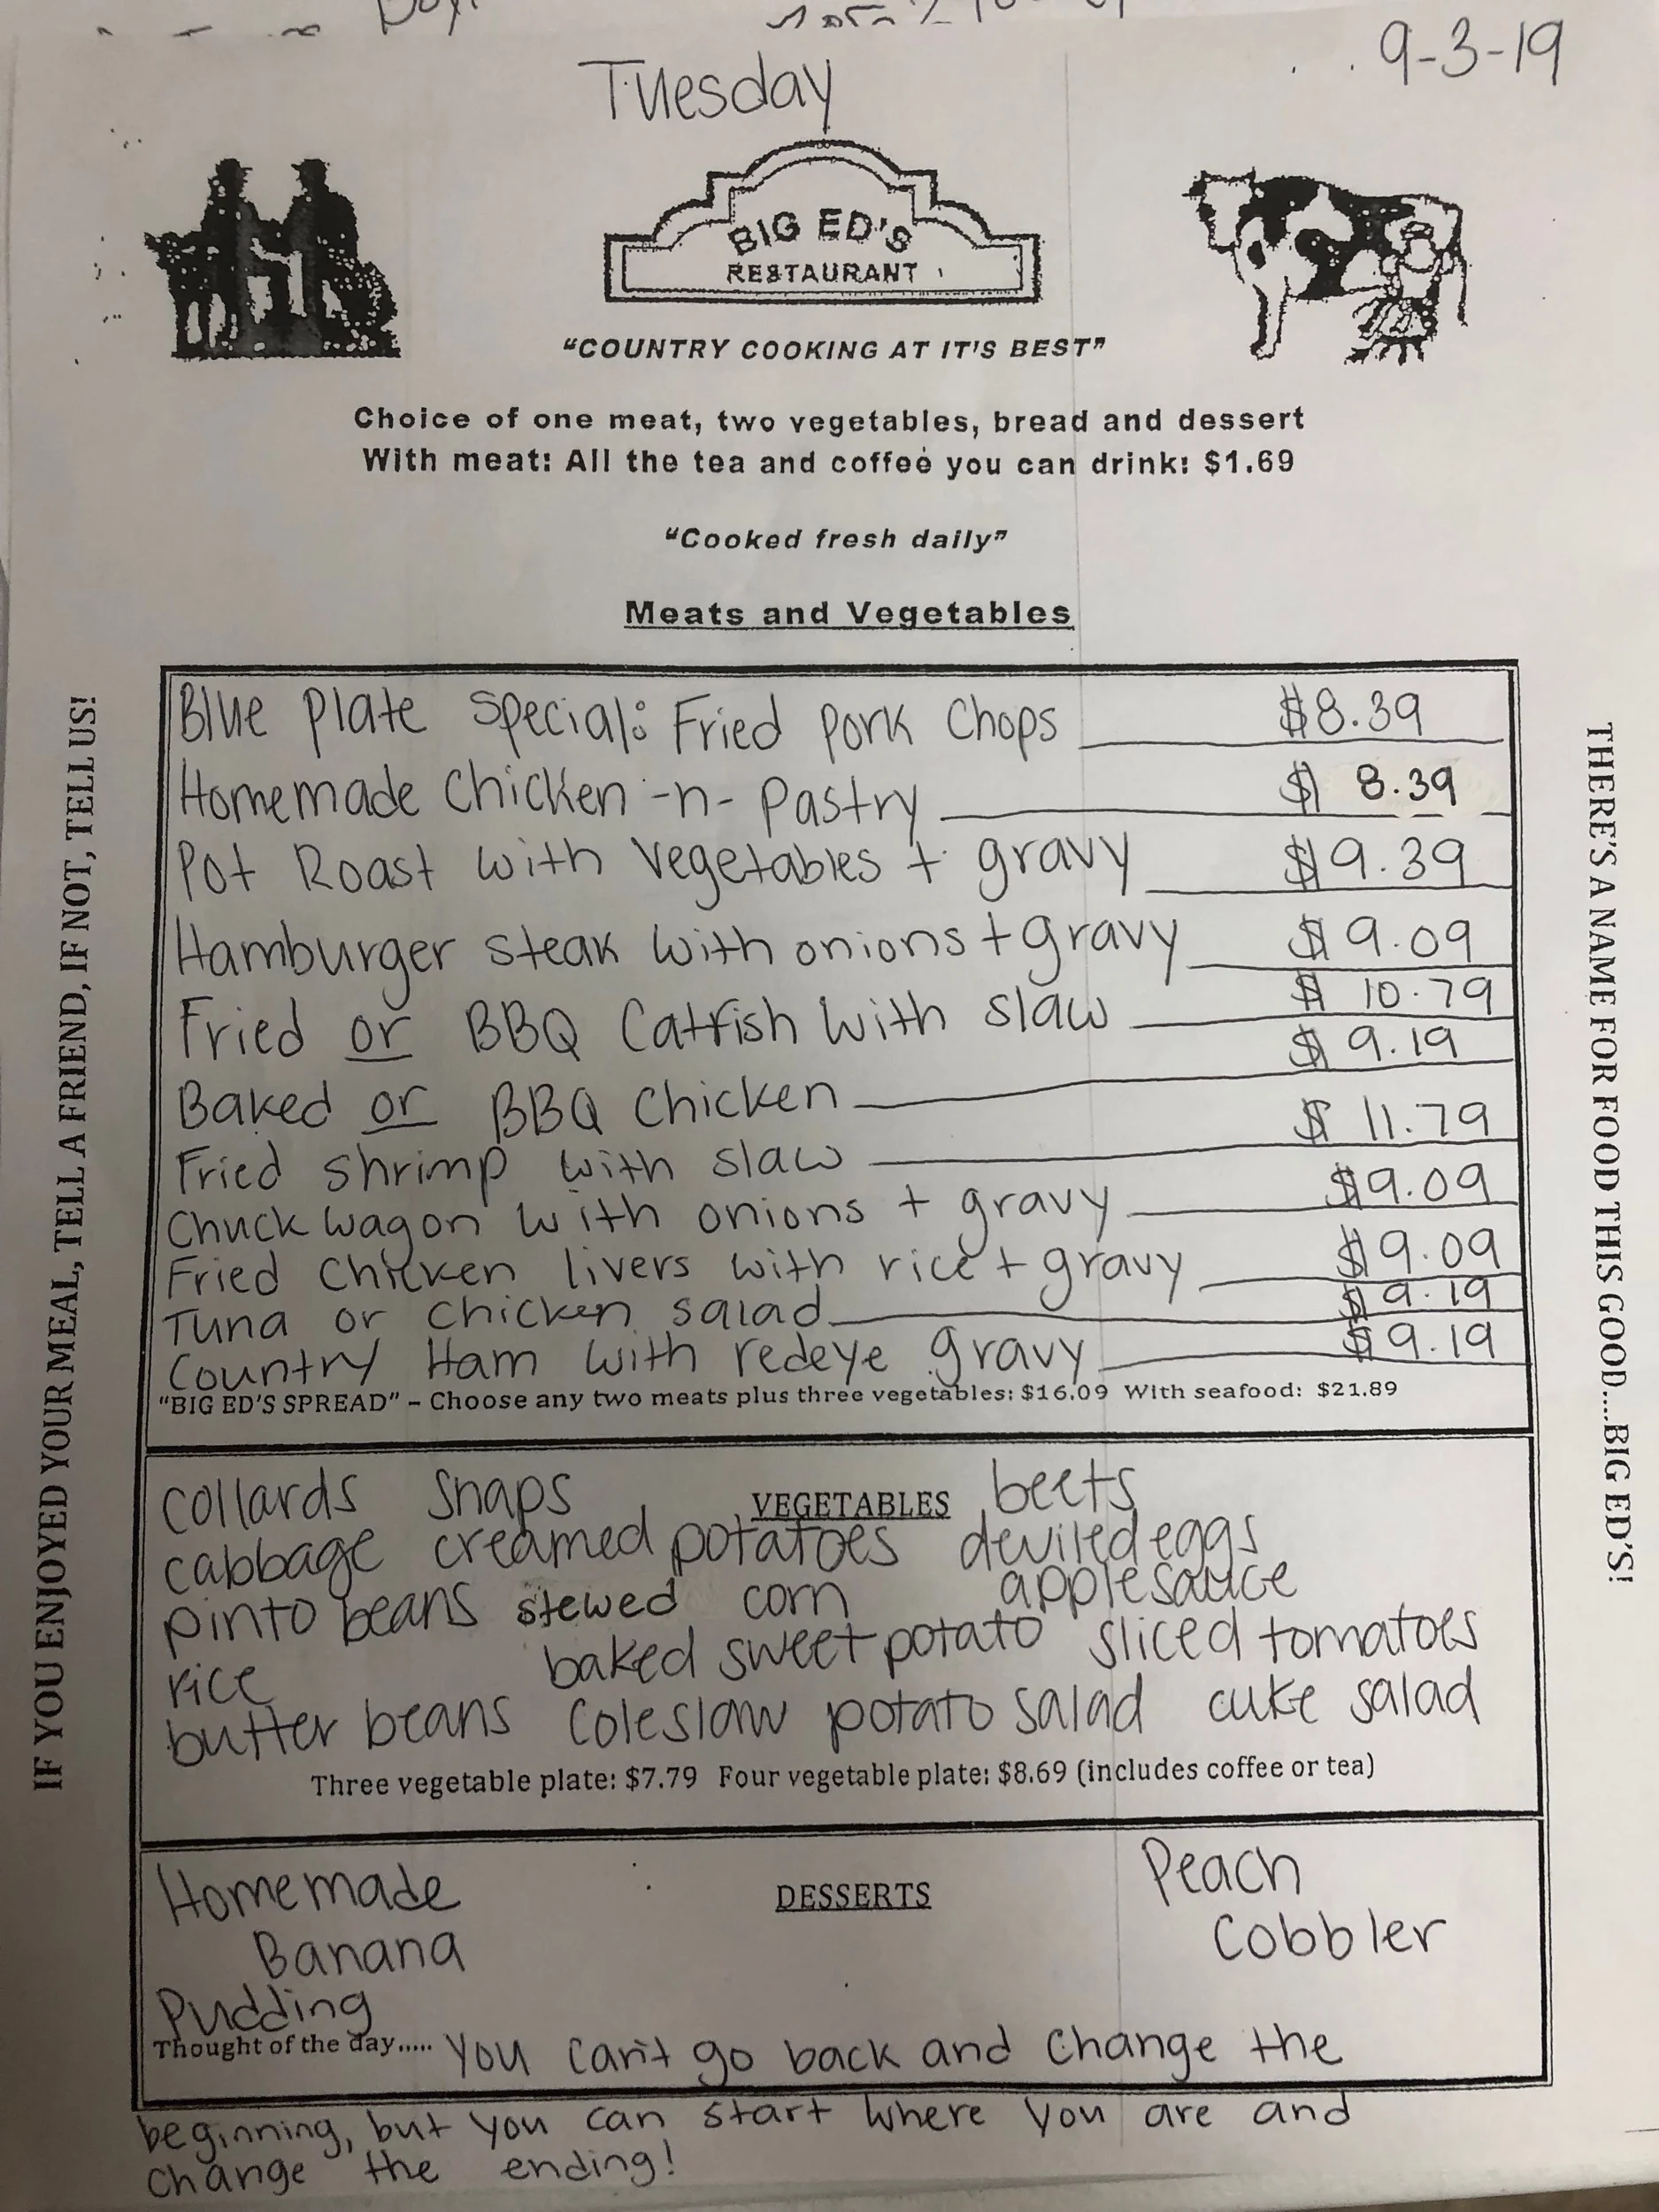 Tuesday
9-3-19
BIG ED'S
RESTAURANT
"COUNTRY COOKING AT IT'S BEST"
Choice of one meat, two vegetables, bread and dessert
With meat: All the tea and coffee you can drink: $1.69
"Cooked fresh daily"
Meats and Vegetables
Blue Plate Special: Fried Pork Chops $8.39
Homemade Chicken-n-Pastry $8.39
Pot Roast with Vegetables + gravy $9.39
Hamburger steak with onions + gravy $9.09
Fried or BBQ Catfish with slaw $10.79
Baked or BBQ Chicken $9.19
Fried shrimp with slaw $11.79
Chuck wagon with onions + gravy $9.09
Fried Chicken livers with rice + gravy $9.09
Tuna or chicken salad $9.19
Country Ham with redeye gravy $9.19
"BIG ED'S SPREAD" – Choose any two meats plus three vegetables: $16.09 With seafood: $21.89
VEGETABLES
collards snaps beets
cabbage creamed potatoes deviled eggs
pinto beans stewed corn applesauce
rice baked sweet potato sliced tomatoes
butter beans Coleslaw potato salad cuke salad
Three vegetable plate: $7.79 Four vegetable plate: $8.69 (includes coffee or tea)
DESSERTS
Homemade
Banana
Pudding
Peach
Cobbler
Thought of the day..... You can't go back and change the
beginning, but you can start where you are and
change the ending!
IF YOU ENJOYED YOUR MEAL, TELL A FRIEND, IF NOT, TELL US!
THERE'S A NAME FOR FOOD THIS GOOD....BIG ED'S!